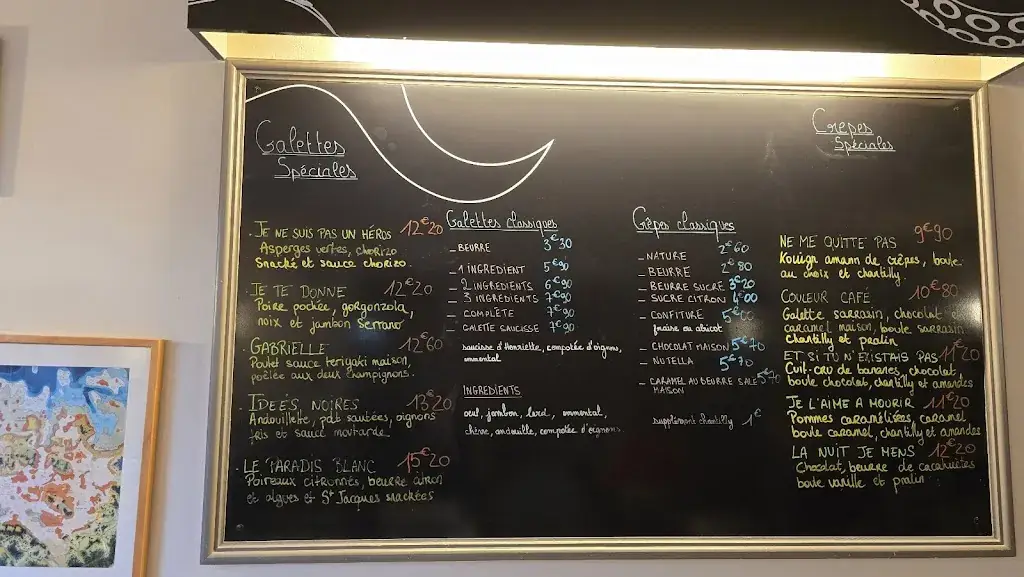 Galettes
Spéciales
. JE NE SUIS PAS UN HÉROS 12€20
Asperges vertes, chorizo
Snacké et sauce chorizo.
. JE TE DONNE 12€20
Poire pochée, gorgonzola,
noix et jambon Serrano
. GABRIELLE 12€60
Poulet sauce teriyaki maison,
poêlée aux deux champignons.
. IDÉES NOIRES 13€20
Andouillette, pdt sautées, oignons
fris et sauce moutarde
. LE PARADIS BLANC 15€20
Poireaux citronnés, beurre citron
et algues et St Jacques snackées
Galettes classiques
_ BEURRE 3€30
_ 1 INGREDIENT 5€90
_ 2 INGREDIENTS 6€90
_ 3 INGREDIENTS 7€90
_ COMPLÈTE 7€90
_ GALETTE SAUCISSE 7€90
saucisse d'Henriette, compotée d'oignons,
emmental
INGREDIENTS
oeuf, jambon, lard, emmental,
chèvre, andouille, compotée d'oignons.
Crêpes classiques
_ NATURE 2€60
_ BEURRE 2€80
_ BEURRE SUCRE 3€20
_ SUCRE CITRON 4€00
_ CONFITURE 5€00
fraise ou abricot
_ CHOCOLAT MAISON 5€70
_ NUTELLA 5€70
_ CARAMEL AU BEURRE SALÉ 5€70
MAISON
supplément chantilly 1€
Crêpes
Spéciales
NE ME QUITTE PAS 9€90
Kouign amann de crêpes, boule
au choix et chantilly
COULEUR CAFÉ 10€80
Galette sarrasin, chocolat et
caramel maison, boule sarrasin
chantilly et pralin
ET SI TU N'EXISTAIS PAS 11€20
Cuit-cru de bananes, chocolat,
boule chocolat, chantilly et amandes
JE L'AIME A MOURIR 11€20
Pommes caramélisées, caramel
boule caramel, chantilly et amandes
LA NUIT JE MENS 12€20
Chocolat, beurre de cacahuètes
boule vanille et pralin